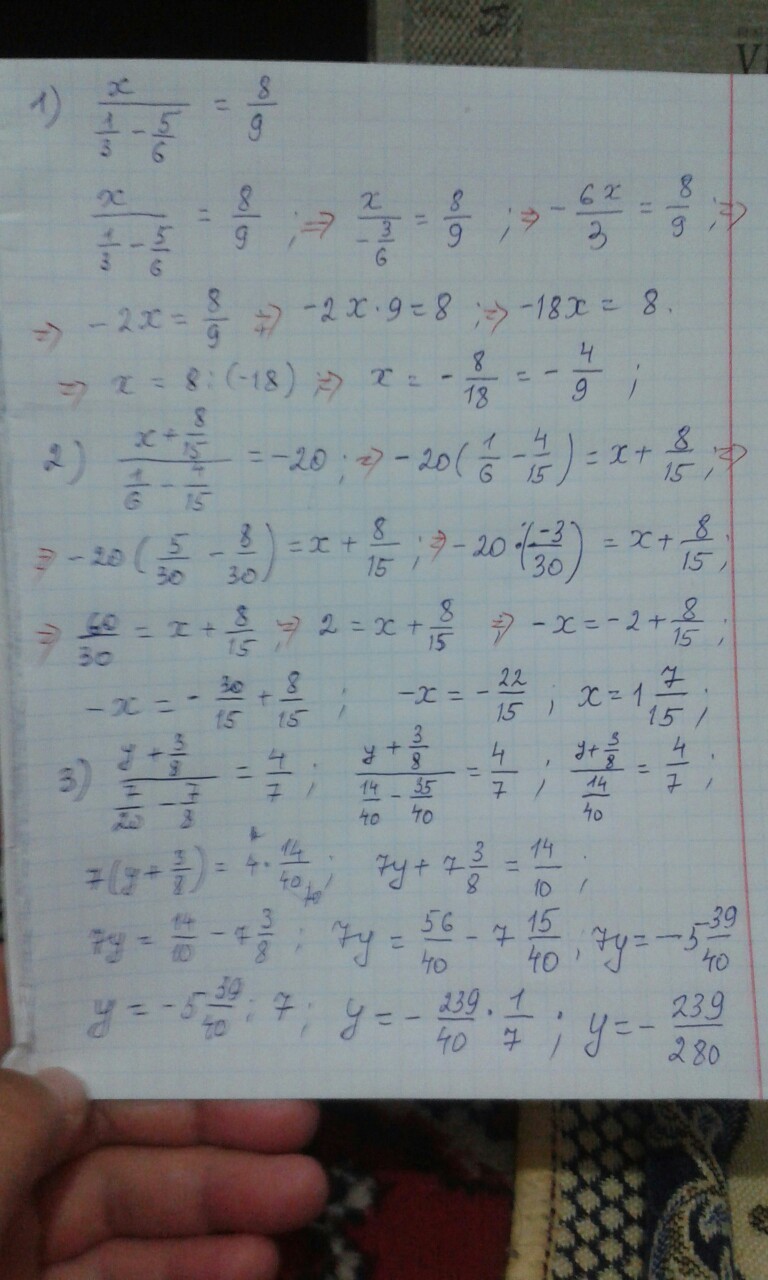 1) x/(1/3 − 5/6) = 8/9
x/(1/3 − 5/6) = 8/9 ; ⇒ x/(−3/6) = 8/9 ; ⇒ −6x/3 = 8/9 ; ⇒
⇒ −2x = 8/9 ⇒ −2x·9 = 8 ; ⇒ −18x = 8.
⇒ x = 8:(−18) ⇒ x = −8/18 = −4/9 ;
2) (x + 8/15)/(1/6 − 4/15) = −20 ; ⇒ −20(1/6 − 4/15) = x + 8/15 ; ⇒
⇒ −20(5/30 − 8/30) = x + 8/15 ; ⇒ −20·(−3/30) = x + 8/15 ;
⇒ 60/30 = x + 8/15 ; ⇒ 2 = x + 8/15 ⇒ −x = −2 + 8/15 ;
−x = −30/15 + 8/15 ; −x = −22/15 ; x = 1 7/15 ;
3) (y + 3/8)/(7/20 − 7/8) = 4/7 ; (y + 3/8)/(14/40 − 35/40) = 4/7 ; (y + 3/8)/(14/40) = 4/7 ;
7(y + 3/8) = 4·14/40 ; 7y + 7 3/8 = 14/10 ;
7y = 14/10 − 7 3/8 ; 7y = 56/40 − 7 15/40 ; 7y = −5 39/40
y = −5 39/40 : 7 ; y = −239/40 · 1/7 ; y = −239/280